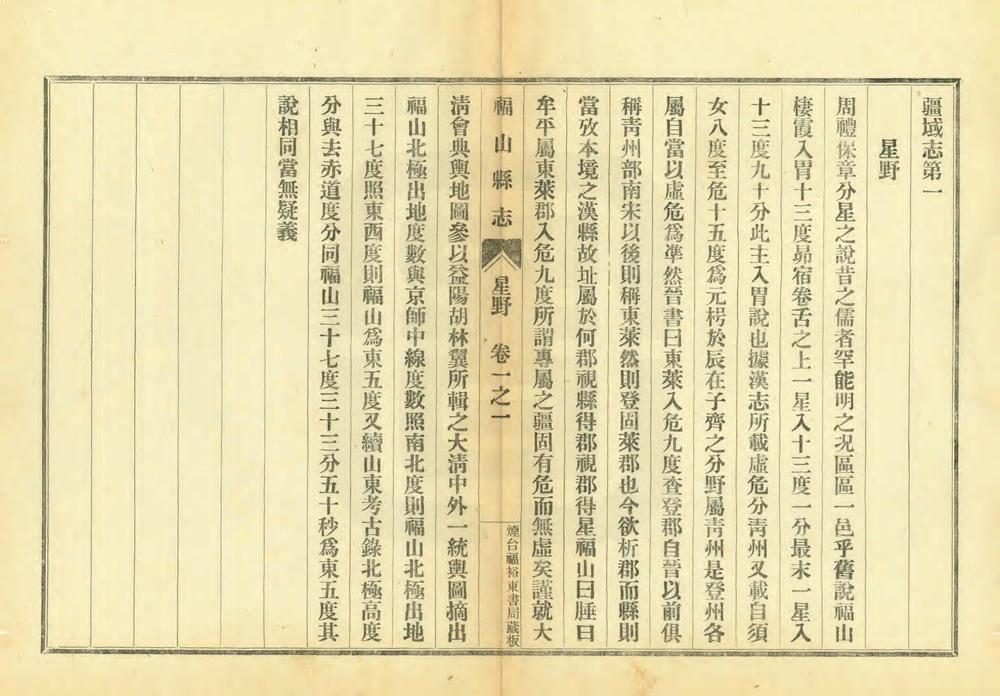 疆域志第一
星野
周禮保章分星之說昔之儒者罕能明之况區區一邑乎舊說福山
棲霞入胃十三度昴宿卷舌之上一星入十三度一分最末一星入
十三度九十分此主入胃說也據漢志所載虛危分靑州又載自須
女八度至危十五度爲元枵於辰在子齊之分野屬靑州是登州各
屬自當以虛危爲準然晉書曰東萊入危九度查登郡自晉以前俱
稱靑州部南宋以後則稱東萊然則登固萊郡也今欲析郡而縣則
當攷本境之漢縣故址屬於何郡視縣得郡視郡得星福山曰腄曰
牟平屬東萊郡入危九度所謂專屬之疆固有危而無虛矣謹就大
福山縣志 星野 卷一之一
煙台福裕東書局藏板
淸會典輿地圖參以益陽胡林翼所輯之大淸中外一統輿圖摘出
福山北極出地度數與京師中線度數照南北度則福山北極出地
三十七度照東西度則福山爲東五度又續山東考古錄北極高度
分與去赤道度分同福山三十七度三十三分五十秒爲東五度其
說相同當無疑義